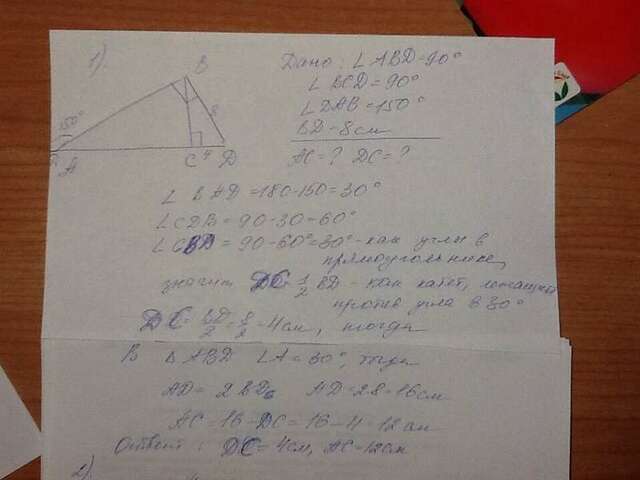 1).
B
150°
8
A
C 4 D
Дано: ∠ABD=90°
∠BCD=90°
∠DAB=150°
BD=8см
AC=? DC=?
∠BAD=180-150=30°
∠CDB=90-30=60°
∠CBD=90-60°=30°-как углы в
прямоугольнике,
значит DC=1/2 BD-как катет, лежащий
против угла в 30°
DC=BD/2=8/2=4см, тогда
В ΔABD ∠A=30°, тогда
AD=2BD AD=2·8=16см
AC=16-DC=16-4=12см
Ответ: DC=4см, AC=12см
2).